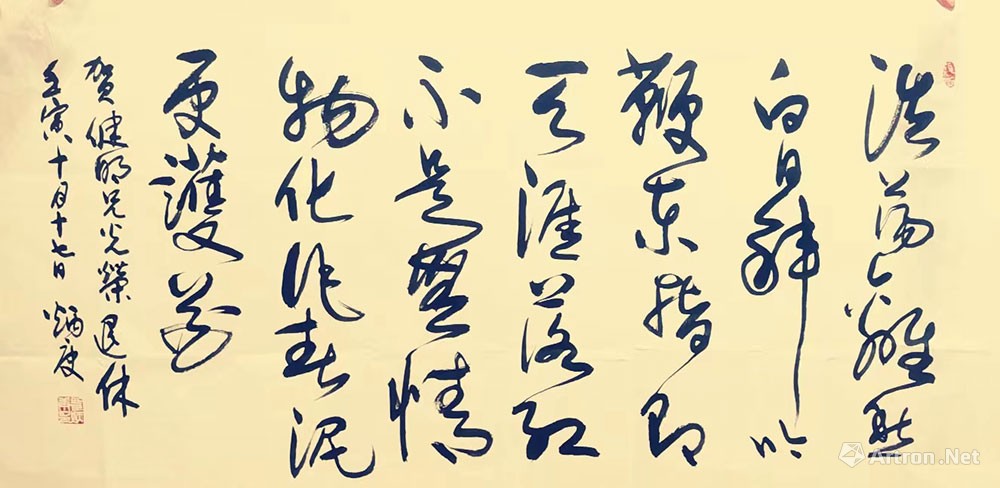 浩荡離愁
白日斜吟
鞭東指即
天涯落红
不是無情
物化作春泥
更護花
贺健明兄光榮退休
壬寅十月十七日 炳
Artron.Net